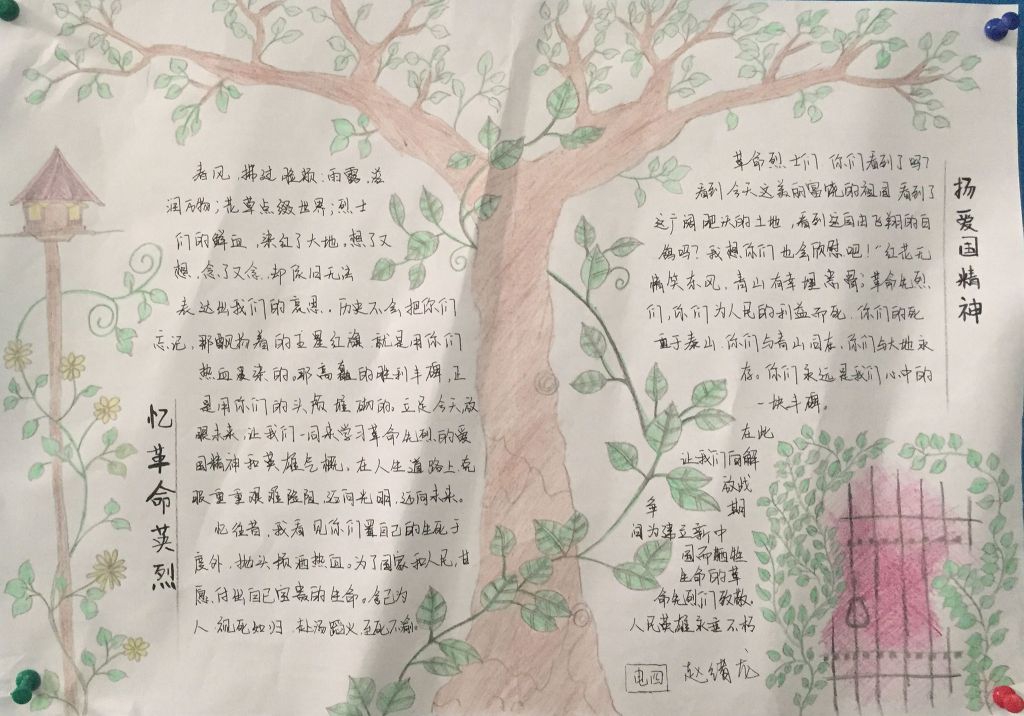 忆革命英烈
春风拂过脸颊,雨露滋
润万物;花草点缀世界;烈士
们的鲜血,染红了大地,想了又
想,念了又念,却依旧无法
表达出我们的哀思。历史不会把你们
忘记,那飘扬着的五星红旗就是用你们
热血浸染的。那高巍的胜利丰碑,正
是用你们的头颅堆砌的。立足今天放
眼未来,让我们一同来学习革命先烈的爱
国精神和英雄气概,在人生道路上克
服重重艰难险阻,迈向光明,迈向未来。
忆往昔,我看见你们置自己的生死于
度外,抛头颅洒热血。为了国家和人民,甘
愿付出自己宝贵的生命。舍己为
人,视死如归,赴汤蹈火,至死不渝。
扬爱国精神
革命烈士们,你们看到了吗?
看到今天这美丽富饶的祖国,看到了
这广阔肥沃的土地,看到这自由飞翔的白
鸽吗?我想你们也会欣慰吧!“红花无
情笑东风,青山有幸埋忠骨;革命先烈
们,你们为人民的利益而死,你们的死
重于泰山,你们与青山同在,你们与大地永
存。你们永远是我们心中的
一块丰碑。
在此
让我们向解
放战
争 期
间为建立新中
国而牺牲
生命的革
命先烈们致敬。
人民英雄永垂不朽
电四 赵绪龙